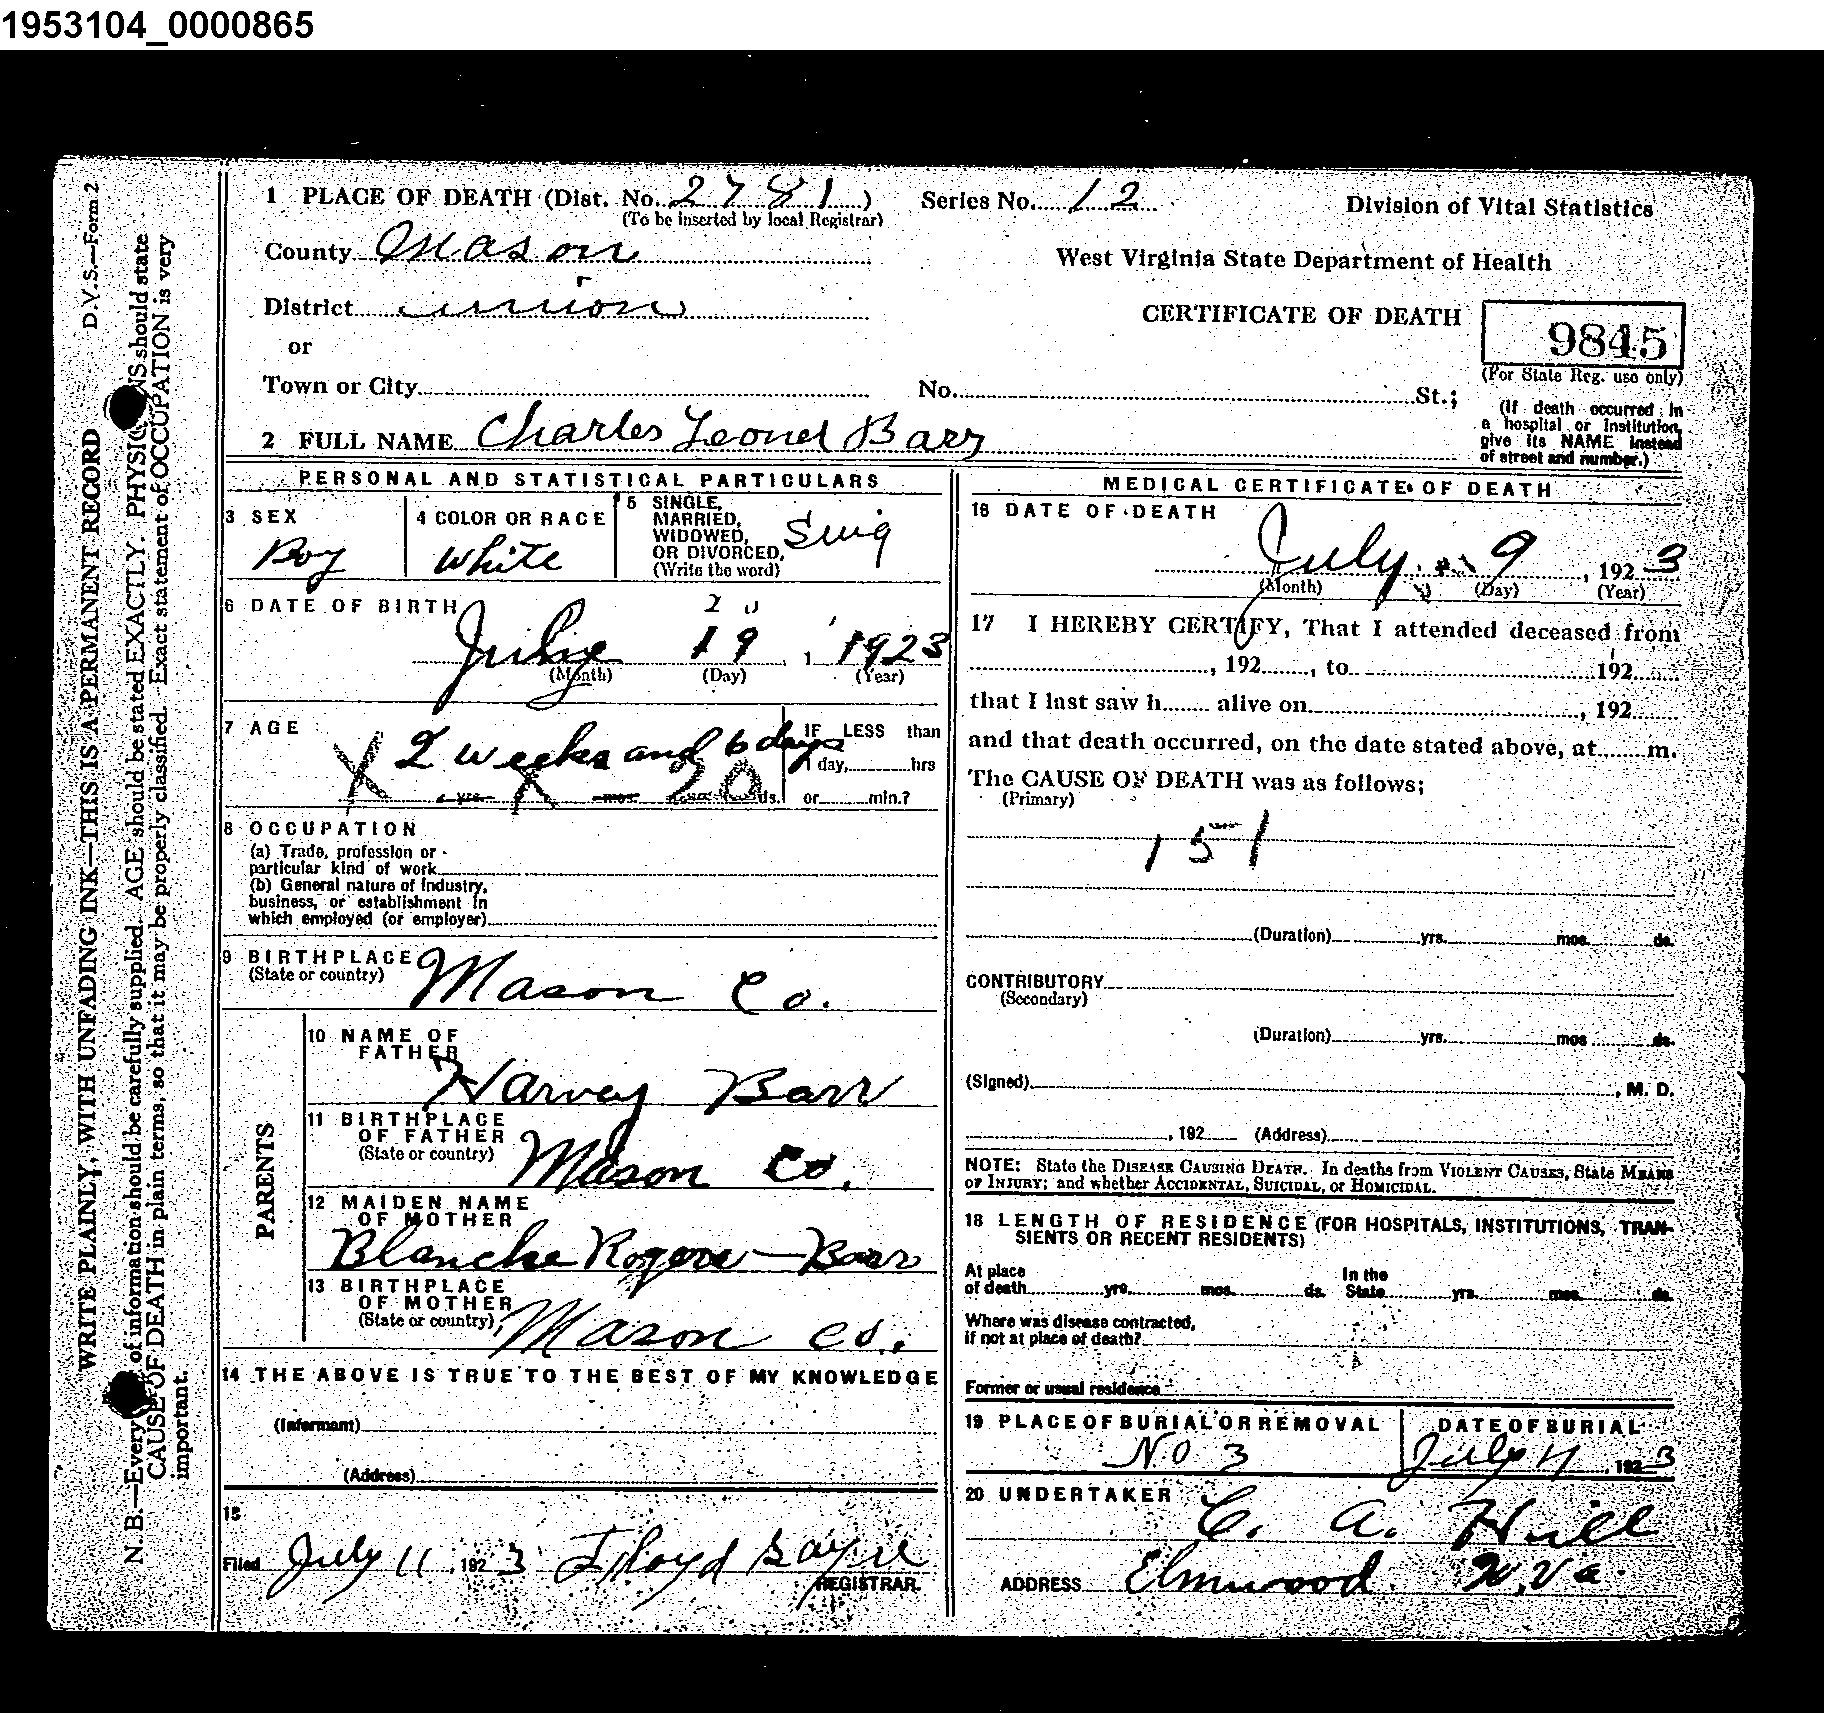 1953104_0000865
D.V.S.—Form 2
WRITE PLAINLY, WITH UNFADING INK—THIS IS A PERMANENT RECORD
N. B.—Every of information should be carefully supplied. AGE should be stated EXACTLY. PHYSIC NS should state
CAUSE OF DEATH in plain terms, so that it may be properly classified. Exact statement of OCCUPATION is very
important.
1 PLACE OF DEATH (Dist. No. 2781) Series No. 12 Division of Vital Statistics
(To be inserted by local Registrar)
County Mason West Virginia State Department of Health
District union CERTIFICATE OF DEATH 9845
or
(For State Reg. use only)
Town or City No. St.;
(If death occurred in
a hospital or institution,
give its NAME instead
of street and number.)
2 FULL NAME Charles Leonel Barr
PERSONAL AND STATISTICAL PARTICULARS
3 SEX
Boy
4 COLOR OR RACE
White
5 SINGLE,
MARRIED,
WIDOWED,
OR DIVORCED,
(Write the word)
Sing
6 DATE OF BIRTH
20
19, 1923
(Month) (Day) (Year)
7 AGE
2 weeks and 6 days
X yrs. X mos. 20 ds.
IF LESS than
1 day, hrs
or min.?
8 OCCUPATION
(a) Trade, profession or
particular kind of work
(b) General nature of industry,
business, or establishment in
which employed (or employer)
9 BIRTHPLACE
(State or country)
Mason Co.
PARENTS
10 NAME OF
FATHER
Harvey Barr
11 BIRTHPLACE
OF FATHER
(State or country)
Mason Co.
12 MAIDEN NAME
OF MOTHER
Blanche Rogers—Barr
13 BIRTHPLACE
OF MOTHER
(State or country)
Mason Co.
14 THE ABOVE IS TRUE TO THE BEST OF MY KNOWLEDGE
(Informant)
(Address)
15
Filed July 11, 1923 Floyd Sayre
REGISTRAR.
MEDICAL CERTIFICATE OF DEATH
16 DATE OF DEATH
July 9, 1923
(Month) (Day) (Year)
17 I HEREBY CERTIFY, That I attended deceased from
, 192 , to 192
that I last saw h alive on , 192
and that death occurred, on the date stated above, at m.
The CAUSE OF DEATH was as follows;
(Primary)
151
(Duration) yrs. mos. ds.
CONTRIBUTORY
(Secondary)
(Duration) yrs. mos ds.
(Signed) , M. D.
, 192 (Address)
NOTE: State the DISEASE CAUSING DEATH. In deaths from VIOLENT CAUSES, State MEANS
OF INJURY; and whether ACCIDENTAL, SUICIDAL, or HOMICIDAL.
18 LENGTH OF RESIDENCE (FOR HOSPITALS, INSTITUTIONS, TRAN-
SIENTS OR RECENT RESIDENTS)
At place
of death yrs. mos. ds.
In the
State yrs. mos. ds.
Where was disease contracted,
if not at place of death?
Former or usual residence
19 PLACE OF BURIAL OR REMOVAL
No 3
DATE OF BURIAL
July 11, 1923
20 UNDERTAKER
C. A. Hill
ADDRESS Elmwood W. Va.